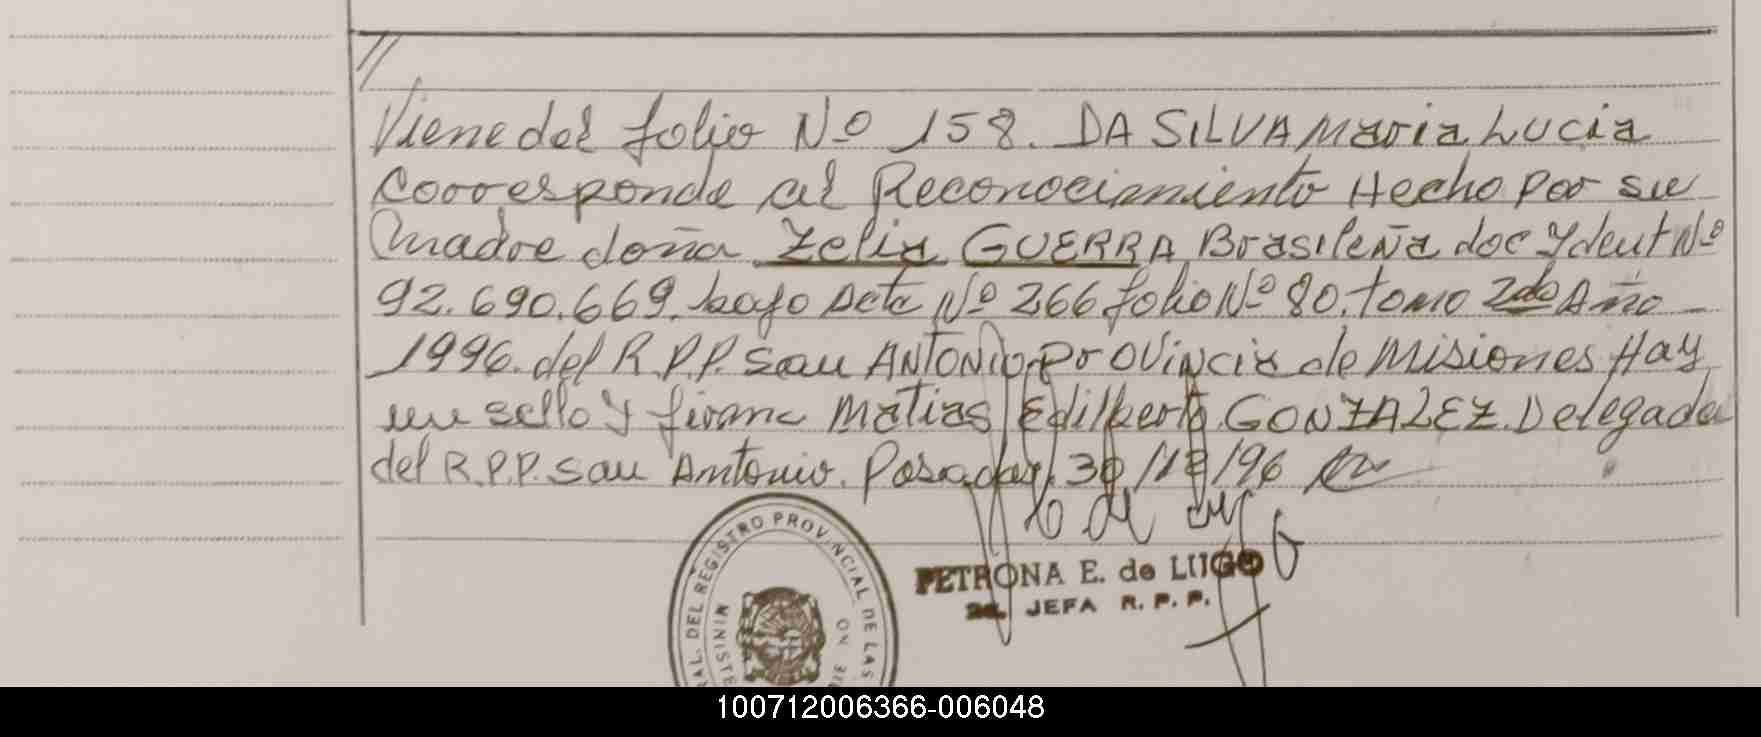 //
Viene del folio Nº 158. DA SILVA Maria Lucia
Corresponde al Reconocimiento Hecho por su
Madre doña Zelia GUERRA Brasileña doc Ydent Nº
92.690.669. bajo Acta Nº 266 folio Nº 80. tomo 2do Año
1996. del R.P.P. San ANTONIO, Provincia de Misiones Hay
un sello y firma Matias Edilberto GONZALEZ. Delegado
del R.P.P. San Antonio. Posadas, 30/12/96
PETRONA E. de LUGO
JEFA R. P. P.
DEL REGISTRO PROVINCIAL DE LAS
100712006366-006048